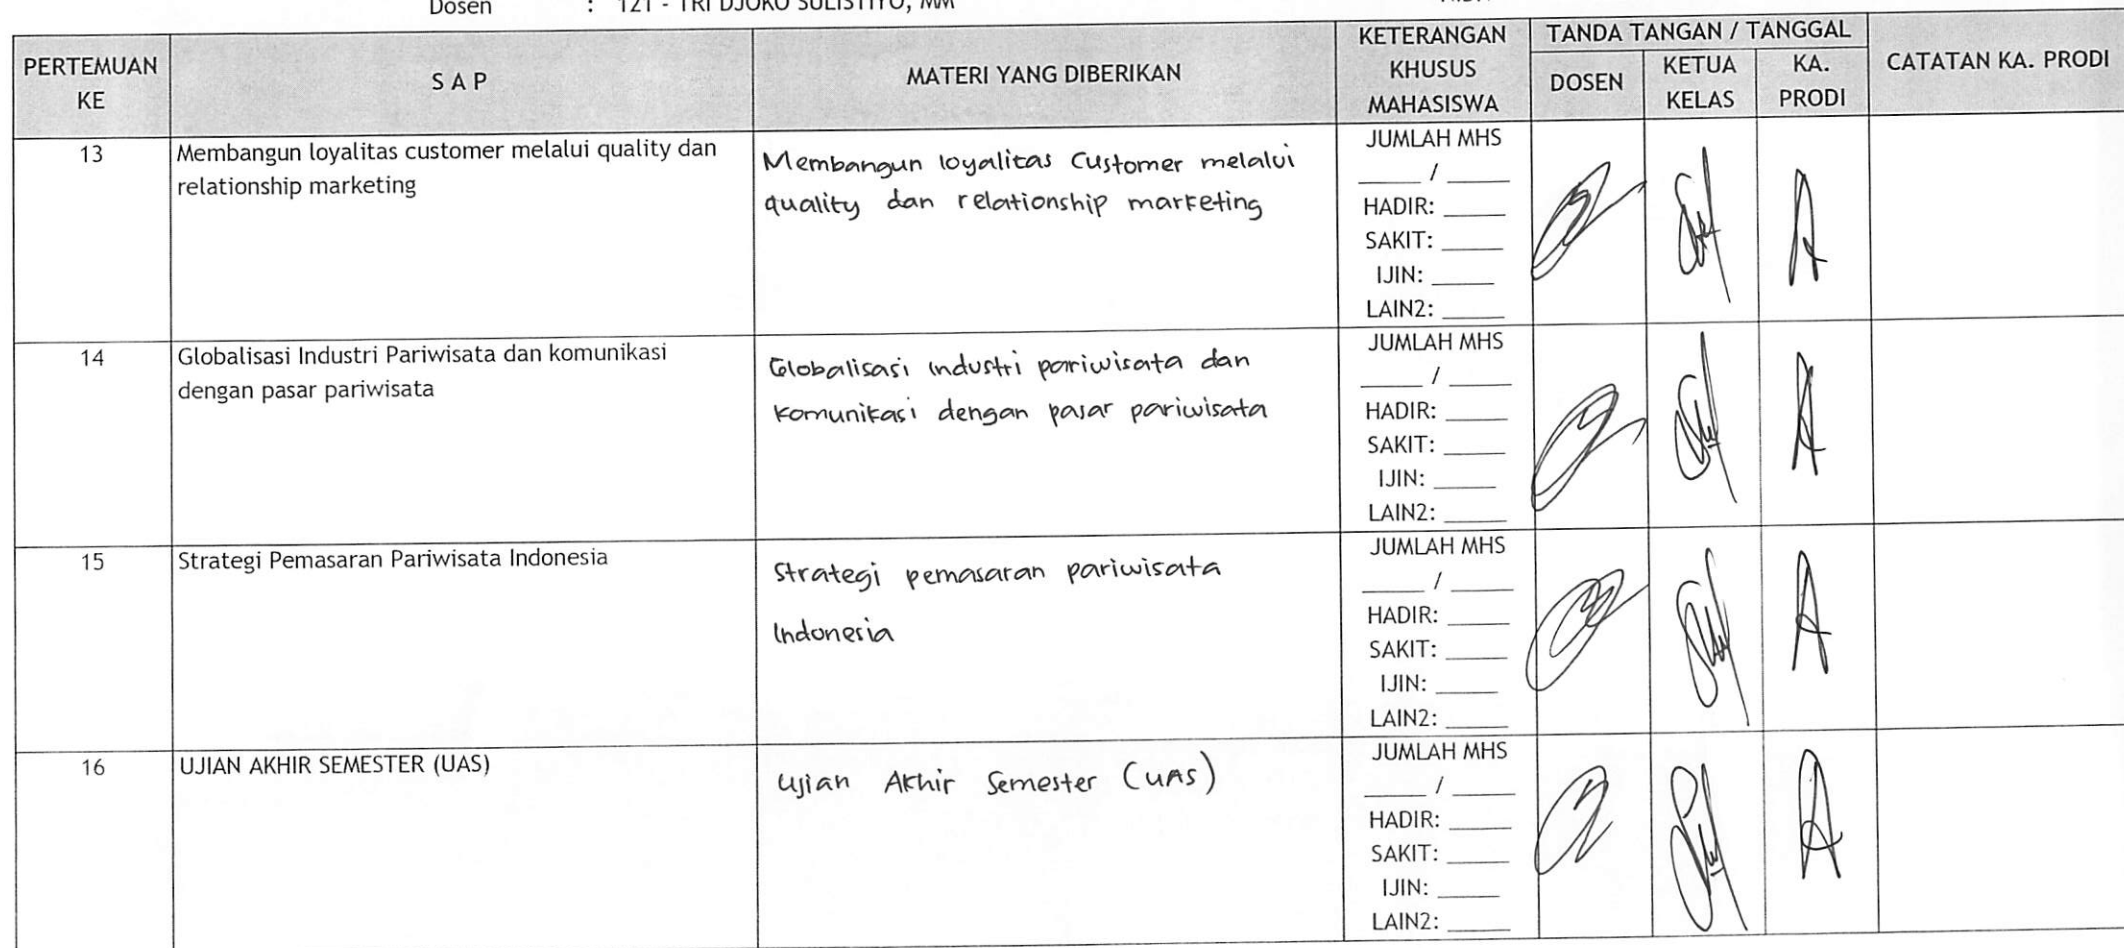 Dosen : 121 - TRI DJOKO SULISTIYO, MM
PERTEMUAN KE
S A P
MATERI YANG DIBERIKAN
KETERANGAN KHUSUS MAHASISWA
TANDA TANGAN / TANGGAL
DOSEN
KETUA KELAS
KA. PRODI
CATATAN KA. PRODI
13
Membangun loyalitas customer melalui quality dan
relationship marketing
Membangun loyalitas Customer melalui
quality dan relationship marketing
JUMLAH MHS
_____ / _____
HADIR: _____
SAKIT: _____
IJIN: _____
LAIN2: _____
14
Globalisasi Industri Pariwisata dan komunikasi
dengan pasar pariwisata
Globalisasi industri pariwisata dan
komunikasi dengan pasar pariwisata
JUMLAH MHS
_____ / _____
HADIR: _____
SAKIT: _____
IJIN: _____
LAIN2: _____
15
Strategi Pemasaran Pariwisata Indonesia
Strategi pemasaran pariwisata
Indonesia
JUMLAH MHS
_____ / _____
HADIR: _____
SAKIT: _____
IJIN: _____
LAIN2: _____
16
UJIAN AKHIR SEMESTER (UAS)
Ujian Akhir Semester (UAS)
JUMLAH MHS
_____ / _____
HADIR: _____
SAKIT: _____
IJIN: _____
LAIN2: _____